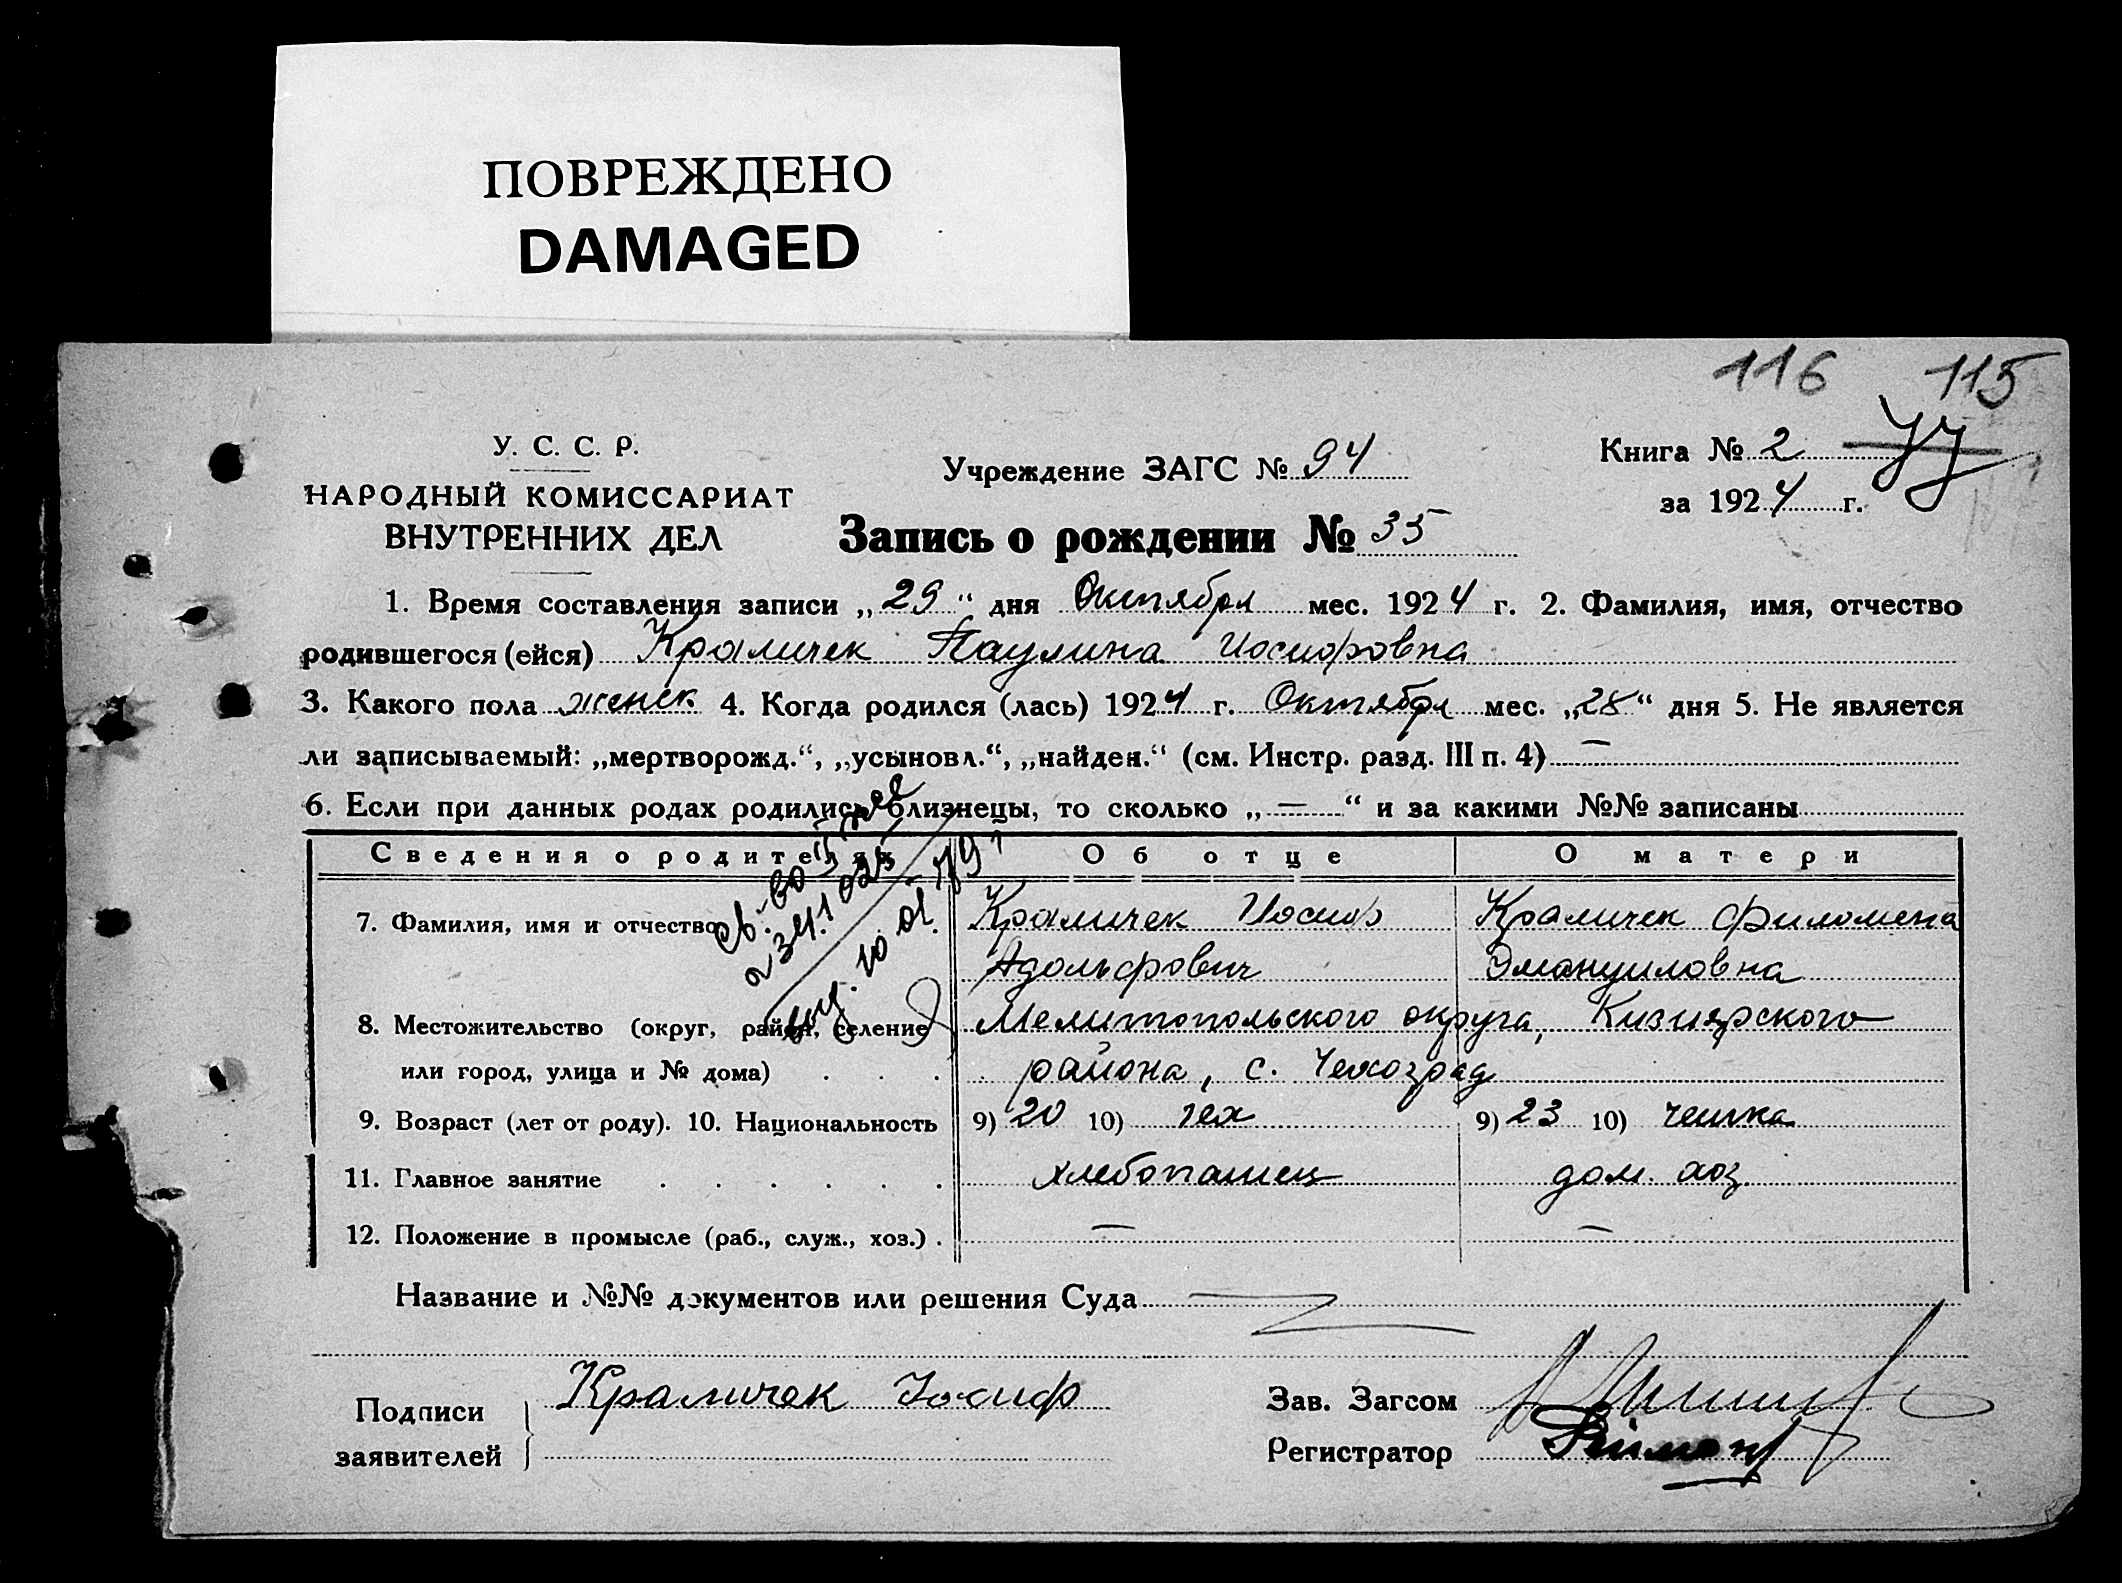 ПОВРЕЖДЕНО
DAMAGED
116 115
У. С. С. Р.
НАРОДНЫЙ КОМИССАРИАТ
ВНУТРЕННИХ ДЕЛ
Учреждение ЗАГС № 94
Книга № 2
за 1924 г.
Запись о рождении № 35
1. Время составления записи „29“ дня Октября мес. 1924 г. 2. Фамилия, имя, отчество
родившегося (ейся) Краличек Паулина Иосифовна
3. Какого пола женск 4. Когда родился (лась) 1924 г. Октября мес. „28“ дня 5. Не является
ли записываемый: „мертворожд.“, „усыновл.“, „найден.“ (см. Инстр. разд. III п. 4) —
6. Если при данных родах родились близнецы, то сколько „—“ и за какими №№ записаны
Сведения о родителях Об отце О матери
7. Фамилия, имя и отчество Краличек Иосиф Краличек Филомена
Адольфович Эмануиловна
8. Местожительство (округ, район, селение Мелитопольского округа, Кизиярского
или город, улица и № дома) района, с. Чехоград
9. Возраст (лет от роду). 10. Национальность 9) 20 10) чех 9) 23 10) чешка
11. Главное занятие хлебопашец дом. хоз.
12. Положение в промысле (раб., служ., хоз.) — —
Название и №№ документов или решения Суда
Подписи
заявителей
Краличек Иосиф
Зав. Загсом
Регистратор